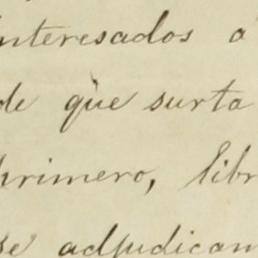 interesados á
de que surta
primero, libr
se adjudican